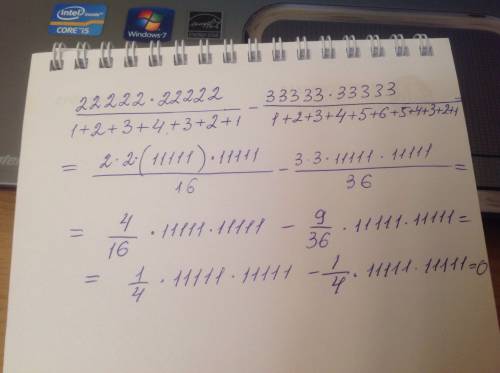 intel CORE i5 Windows 7
22222·22222 / 1+2+3+4+3+2+1 − 33333·33333 / 1+2+3+4+5+6+5+4+3+2+1 =
= 2·2·(11111)·11111 / 16 − 3·3·11111·11111 / 36 =
= 4/16 · 11111·11111 − 9/36 · 11111·11111 =
= 1/4 · 11111·11111 − 1/4 · 11111·11111 = 0